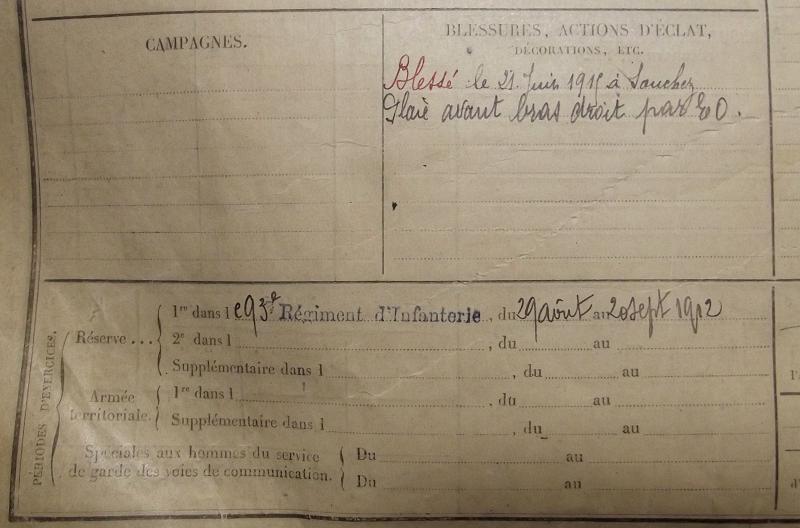 CAMPAGNES.
BLESSURES, ACTIONS D'ÉCLAT,
DÉCORATIONS, ETC.
Blessé le 21 Juin 1915 à Souchez
Plaie avant bras droit par EO.
PÉRIODES D'EXERCICES.
Réserve ...
1re dans l e 93e Régiment d'Infanterie, du 29 août au 20 sept 1912
2e dans l , du au
Supplémentaire dans l , du au
Armée territoriale.
1re dans l , du au
Supplémentaire dans l , du au
Spéciales aux hommes du service
de garde des voies de communication.
Du au
Du au